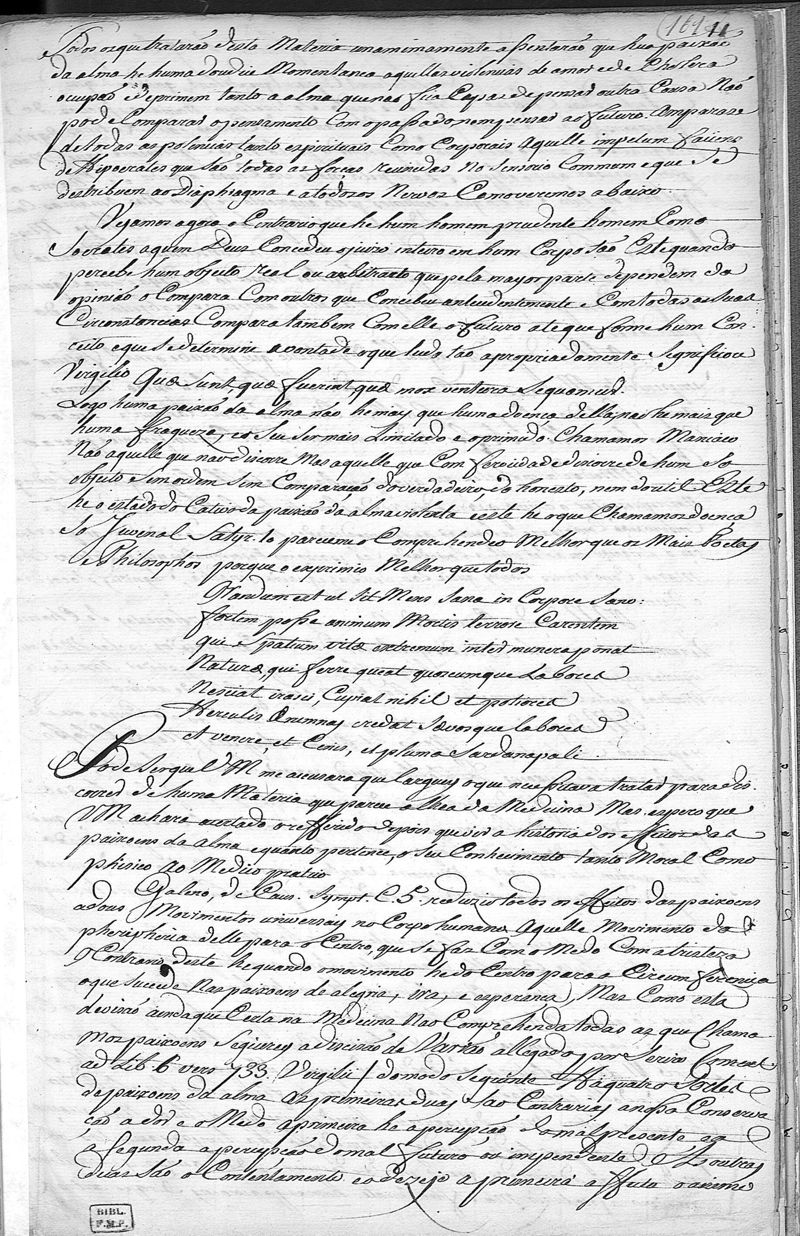 161 11
Todos os que tratarão desta Materia unanimamente assentarão que hua paixaõ
da alma he huma doudice Momentanea aquellas violencias de amor e de Cholera
ocupaõ e deprimem tanto a alma que naõ fica Capas de pensar outra Couza Naõ
pode Comparar o pensamento Com o passado nem pensar ao futuro. Amparaze
de todas as potencias tanto espirituais Como Corporais Aquelle impetum faciens
de Hipocrates que saõ todas as forças reunidas no Sensorio Commum e que Se
destribuem ao Diaphragma e a todos os Nervos Como veremos abaixo.
Vejamos agora o Contrario que he hum homem prudente homem Como
Socrates a quem Deus Concedeu o juizo inteiro em hum Corpo Saõ Este quando
percebe hum objecto real ou arbitrario que pela mayor parte dependem da
opiniaõ o Compara Com outros que Concebeu antecedentemente e Com todas as suas
Circonstancias Compara tambem Com elle o futuro ate que forme hum Con-
ceito e que Se determine a vontade o que tudo taõ apropriadamente Segnificou
Virgilio Quæ Sunt, quæ fuerint quæ mox ventura Sequantur.
Logo huma paixaõ da alma não he may que huma doença della; naõ he mais que
huma fraqueza, e o Seu Ser mais Limitado e oprimido. Chamamos Maniaco
Naõ aquelle que naõ discorre Mas aquelle que Com ferocidade discorre de hum So
objecto e sem ordem Sem Comparaçaõ do verdadeiro, do honesto, nem do util Este
he o estado do Cativo da paixaõ da alma violenta e este he o que Chamamos doença
So Juvenal Satyr. 10 pareceme o Comprehendeo Melhor que os Mais Poetas
e Philosophos porque o exprimio Melhor que todos
Orandum est ut Sit Mens Sana in Corpore Sano:
fortem posse animum Mortis terrore Carentem
qui Spatium vitæ extremum inter munera ponat
Naturæ, qui ferre queat quoscumque Labores
Nesciat irasci, Cupiat nihil et potiores
Herculis ærumnas credat Sævosque labores
et venere, et Cœnis, et pluma Sardanapali.
Pode Ser que V M me acusara que larguey o que necessitava tratar para dis-
correr de huma Materia que parece alhea da Medicina Mas espero que
V M achara acertado o refferido depois que vir a historia dos effeitos das
paixoens da alma e quanto pertence o seu Conhecimento tanto Moral Como
phisico ao Medico pratico
Galeno, de Caus. Sympt. C. 5. reduzio todos os effeitos das paixoens
a dous Movimentos universais no Corpo humano Aquelle Movimento da
pheripheria delle para o Centro, que se faz Com o Medo Com a tristeza
O Contrario deste he quando o movimento he do Centro para a Circumferencia
o que Sucede Nas paixoens de alegria, ira, e esperança, Mas Como esta
devisaõ ainda que Certa na Medicina Naõ Comprehenda todas as que Chama-
mos paixoens Seguirey a divisaõ de Varraõ allegado por Servio Coment
ad Lib 6 vers 733. Virgilii / do modo Seguinte Há quatro Sortes
de paixoens da alma As primeiras duas Saõ Contrarias a nossa Conserva
çaõ a dor e o Medo a primeira he a percepçaõ do mal presente
a Segunda a percepçaõ do mal futuro ou impendente As outras
duas Saõ o Contentamento e o dezejo a primeira
BIBL.
F.M.P.